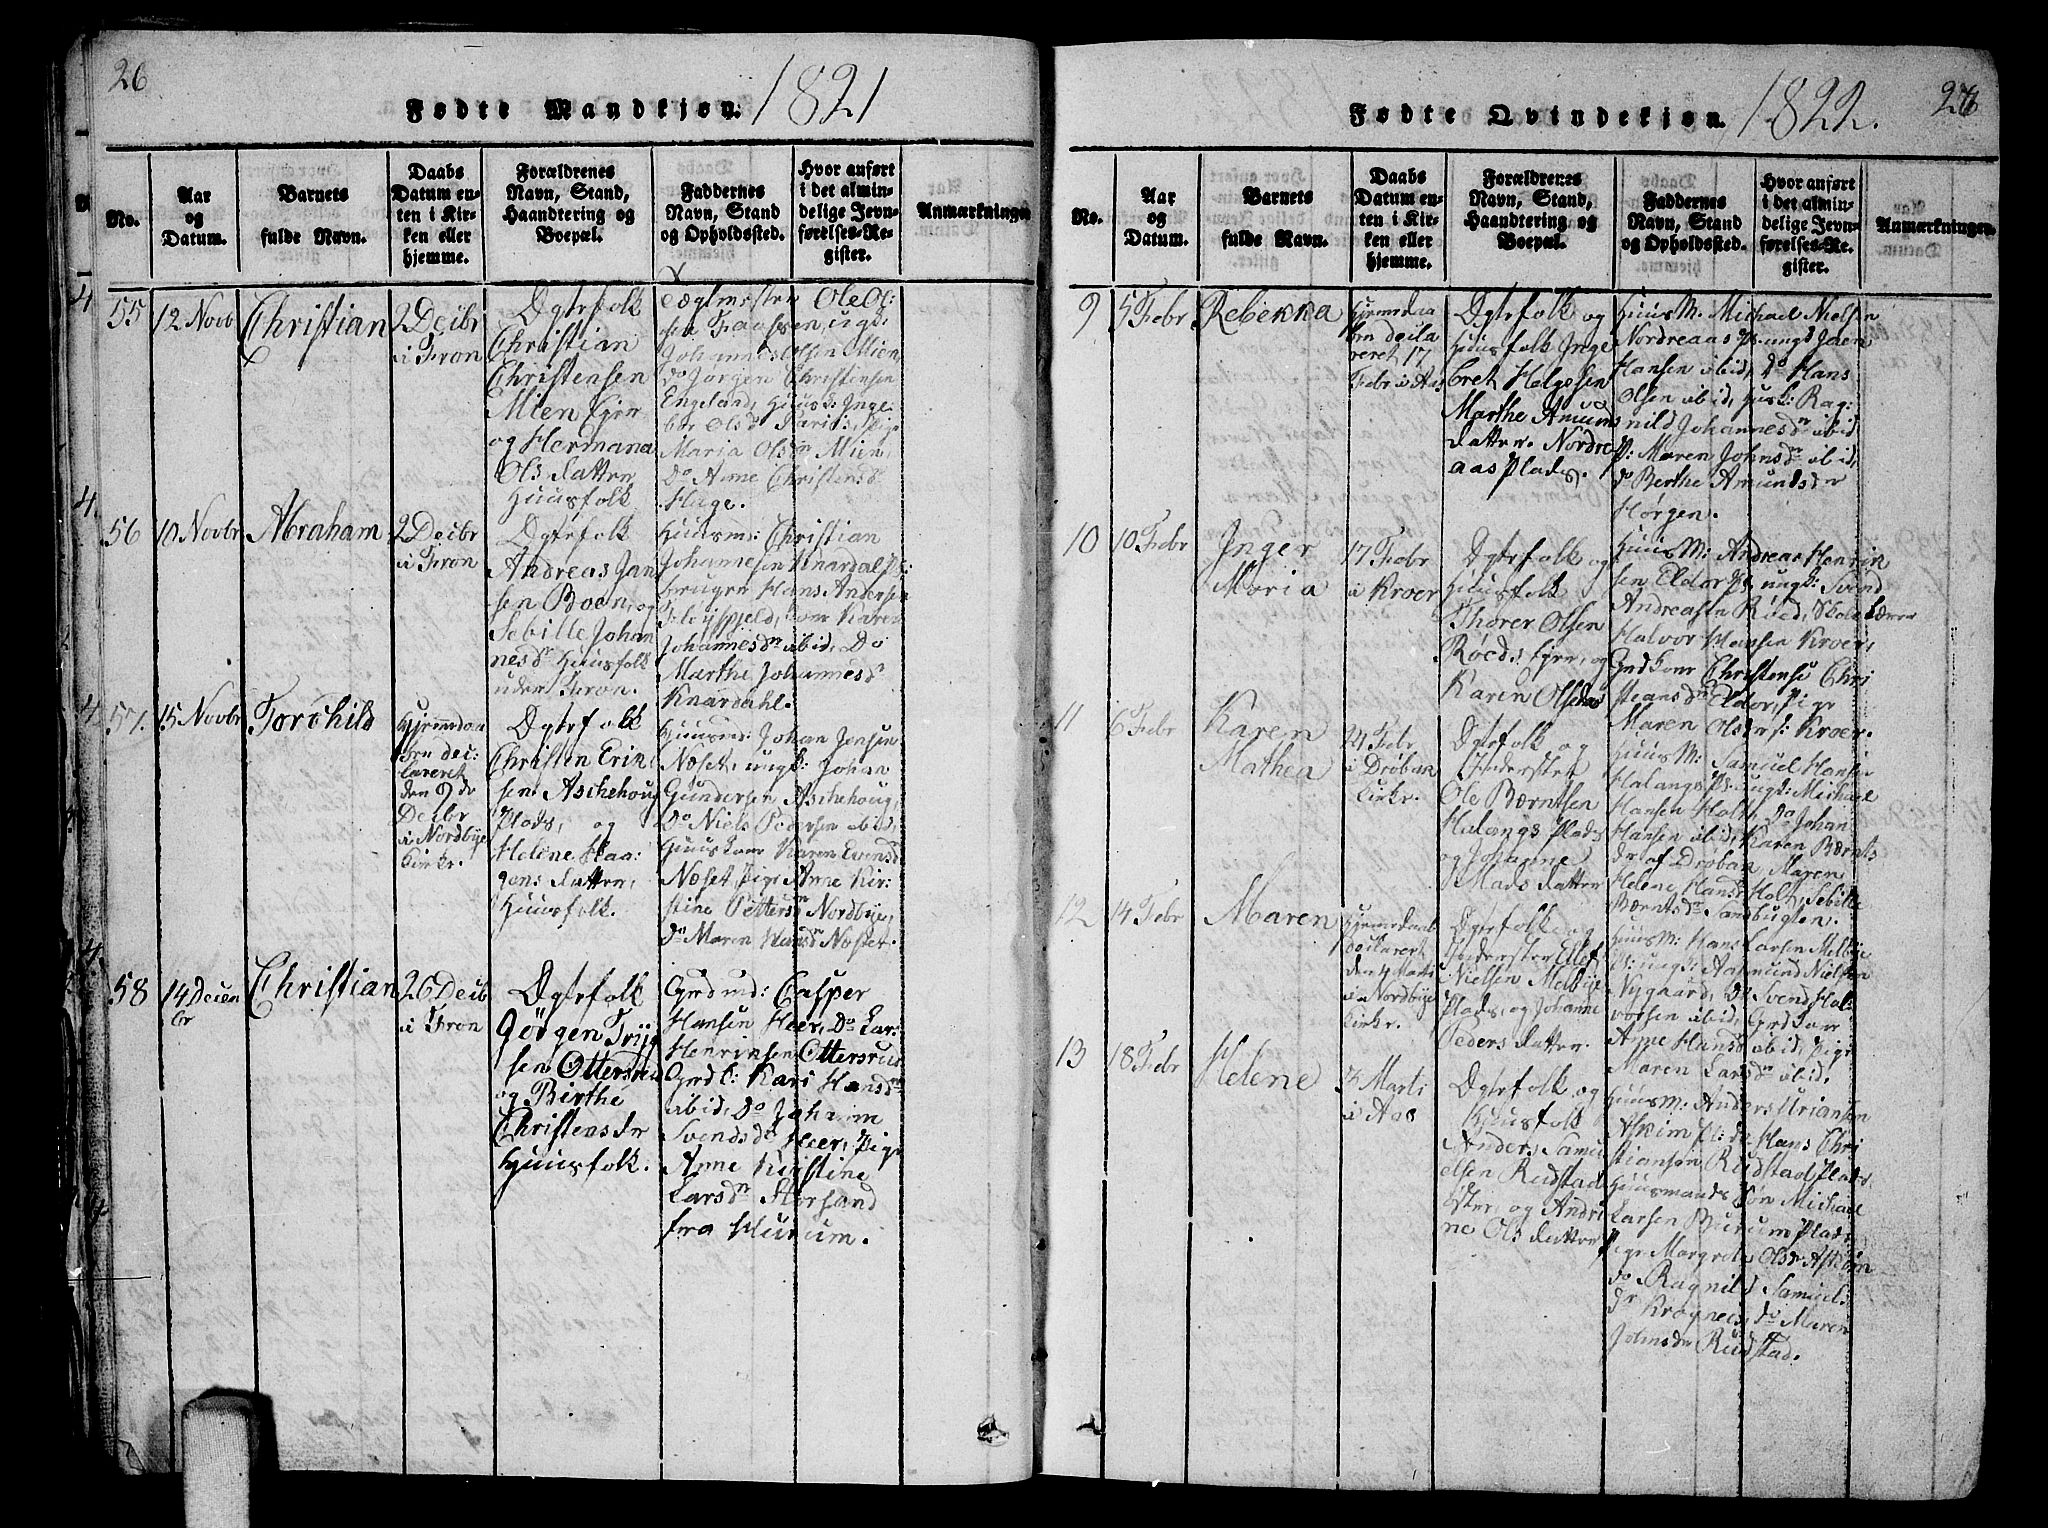 26
Fødte Mandkjøn. 1821
No.
Aar
og
Datum.
Barnets
fulde Navn.
Daabs
Datum en-
ten i Kir-
ken eller
hjemme.
Forældrenes
Navn, Stand,
Haandtering og
Boepæl.
Faddernes
Navn, Stand
og Opholdssted.
Hvor anført
i det almin-
delige Jevn-
førelses-Re-
gister.
Anmærkninger
55
12 Novb
Christian
2 Decbr
i Fron
Dgtrfolk
Christian
Christensen
Mien Ejer
og Hermana
Ols datter
Huusfolk
Ole Ol:
sen Faalsen, ugk.
Johannes Olsen Mien,
do Jørgen Christensen
Engeland, Huusk: Inge
bor Olsd Paris, Pige
Maria Olsdr Mien,
do Anne Christensdr
Hage.
56
10 Novbr
Abraham
2 Decbr
i Fron
Dgtrfolk
Andreas Jan
sen Boen, og
Sebille Johan
nesdr Huusfolk
under Fron.
Huusm: Christian
Johannesen Knardal Pl:
bruger Hans Andersen
Fløyspjeld, kone Karen
Johannesdr ibid, Do
Marthe Johannesdr
Knardahl.
57.
15 Novbr
Torchild
Hjemmedaa
ben dec:
lareret
den 9 de
Decbr
i Nordbye
Kirke.
Dgtrfolk
Christen Erik
sen Aschehoug
Plads, og
Helene Haa:
gens datter,
Huusfolk.
Huusm: Johan Jensen
Næset, ungk: Johan
Gundersen Aschehoug,
Do Niels Pedersen ibid,
Huuskone Karen Evensdr
Næset, Pige Anne Kir:
stine Pettersdr Nordbye,
do Maren Hansdr Næset.
58
14 Decem
br
Christian
26 Decb
i Fron
Dgtrfolk
Gørgen Tryg
sen Ottersrud
og Birthe
Christens dr
Huusfolk.
Grdmd: Casper
Hansen Heer, Do Lar:
Henriksen Ottersrud
Grdk: Kari Hansdr
ibid, Do Johann
Svendsdr Heer, Pige
Anne Kirstine
Larsdr Storsand
fra Hurum.
26
Fødte Qvindekjøn. 1822.
No.
Aar
og
Datum.
Barnets
fulde Navn.
Daabs
Datum en-
ten i Kir-
ken eller
hjemme.
Forældrenes
Navn, Stand,
Haandtering og
Boepæl.
Faddernes
Navn, Stand
og Opholdssted.
Hvor anført
i det almin-
delige Jevn-
førelses-Re-
gister.
Anmærkninger.
9
5 Febr
Rebekka
Hjemedaa
ben decla
reret 17
Febr i Aas
Dgtrfolk og
Huusfolk Inge
bret Helgesen
Marthe Amunds
datter. Nordre
aas Plads.
Huus M. Michael Nielsen
Nordreaas Pl. ungk Jaen
Hansen ibid, do Hans
Olsen ibid, husk: Rag:
nild Johannesdr ibid
P: Maren Johnsdr ibid,
do Berthe Amundsdr
Hørgen.
10
10 Febr
Inger
Maria
17 Febr
i Kroer
Dgtrfolk og
Huusfolk
Thorer Olsen
Røed: Ejer, og
Karen Olsdatr
Huus M: Andreas Henrik
sen Eldor Pl, ungk: Svend
Andreasen Røed, Skoelærer
Halvor Hansen Kroer,
Grdkone Christense Chri
steansdr Eldor, Pige
Maren Olsdr f: Kroer.
11
6 Febr
Karen
Mathea
24 Febr
i Drøbak
Kirke.
Dgtrfolk og
Inderster
Ole Bærntsen
Halangs Plads
og Johanne
Mads datter
Huus M: Samuel Hansen
Halangs Pl: ungk: Michael
Hansen Holt, do Johan
Hansen ibid, Karen Bærnts
dr af Drøbak, Maren
Helene Hansdr Holt, Sebille
Bærntsdr Sandbugten.
12
14 Febr
Maren
Hjemedaab
declareret
den 4 Marti
i Nordbye
Kirke.
Dgtrfolk og
Inderster Ellef
Nielsen Melbye
Plads, og Johanne
Peders datter.
Huus M: Hans Larsen Melbye
Pl: ungk: Aasmund Nielsen
Nygaard, Do Svend Hal:
vorsen ibid, Grdkone
Anne Hansdr ibid, Pige
Maren Larsdr ibid.
13
18 Febr
Helene
3 Marti
i Aas
Dgtrfolk og
Huusfolk
Anders Samu
elsen Rustad
Øster, og Andri
ne Ols datter
Huus M: Anders Uriansen
Askim Pl: do Hans Chri
stiansen Rudstad Plads,
Huusmands Søn Michael
Larsen Burum Plads,
Pige Margrete Olsdr Askim
do Ragnild Samuels:
dr Kragnes, do Maren
Johnsdr Rudstad.